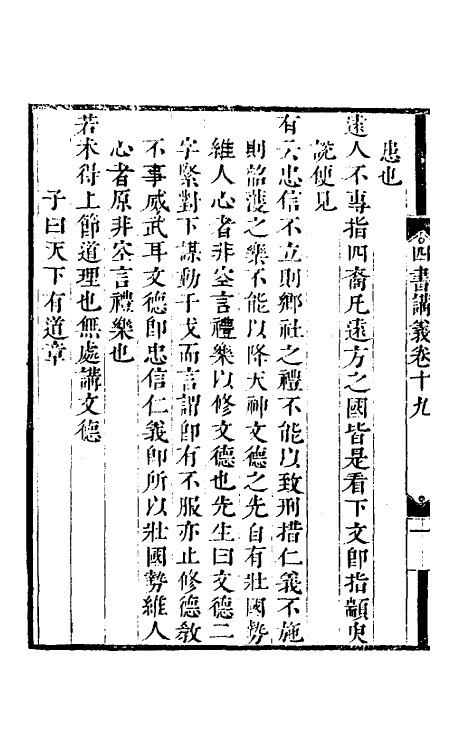 四書講義卷十九
患也
遠人不專指四裔凡遠方之國皆是看下文即指顓臾
說便見
有云忠信不立則鄉社之禮不能以致刑措仁義不施
則韶濩之樂不能以降天神文德之先自有壯國勢
維人心者非空言禮樂以修文德也先生曰文德二
字緊對下謀動干戈而言謂即有不服亦止修德敎
不事威武耳文德即忠信仁義即所以壯國勢維人
心者原非空言禮樂也
若未得上節道理也無處講文德
子曰天下有道章